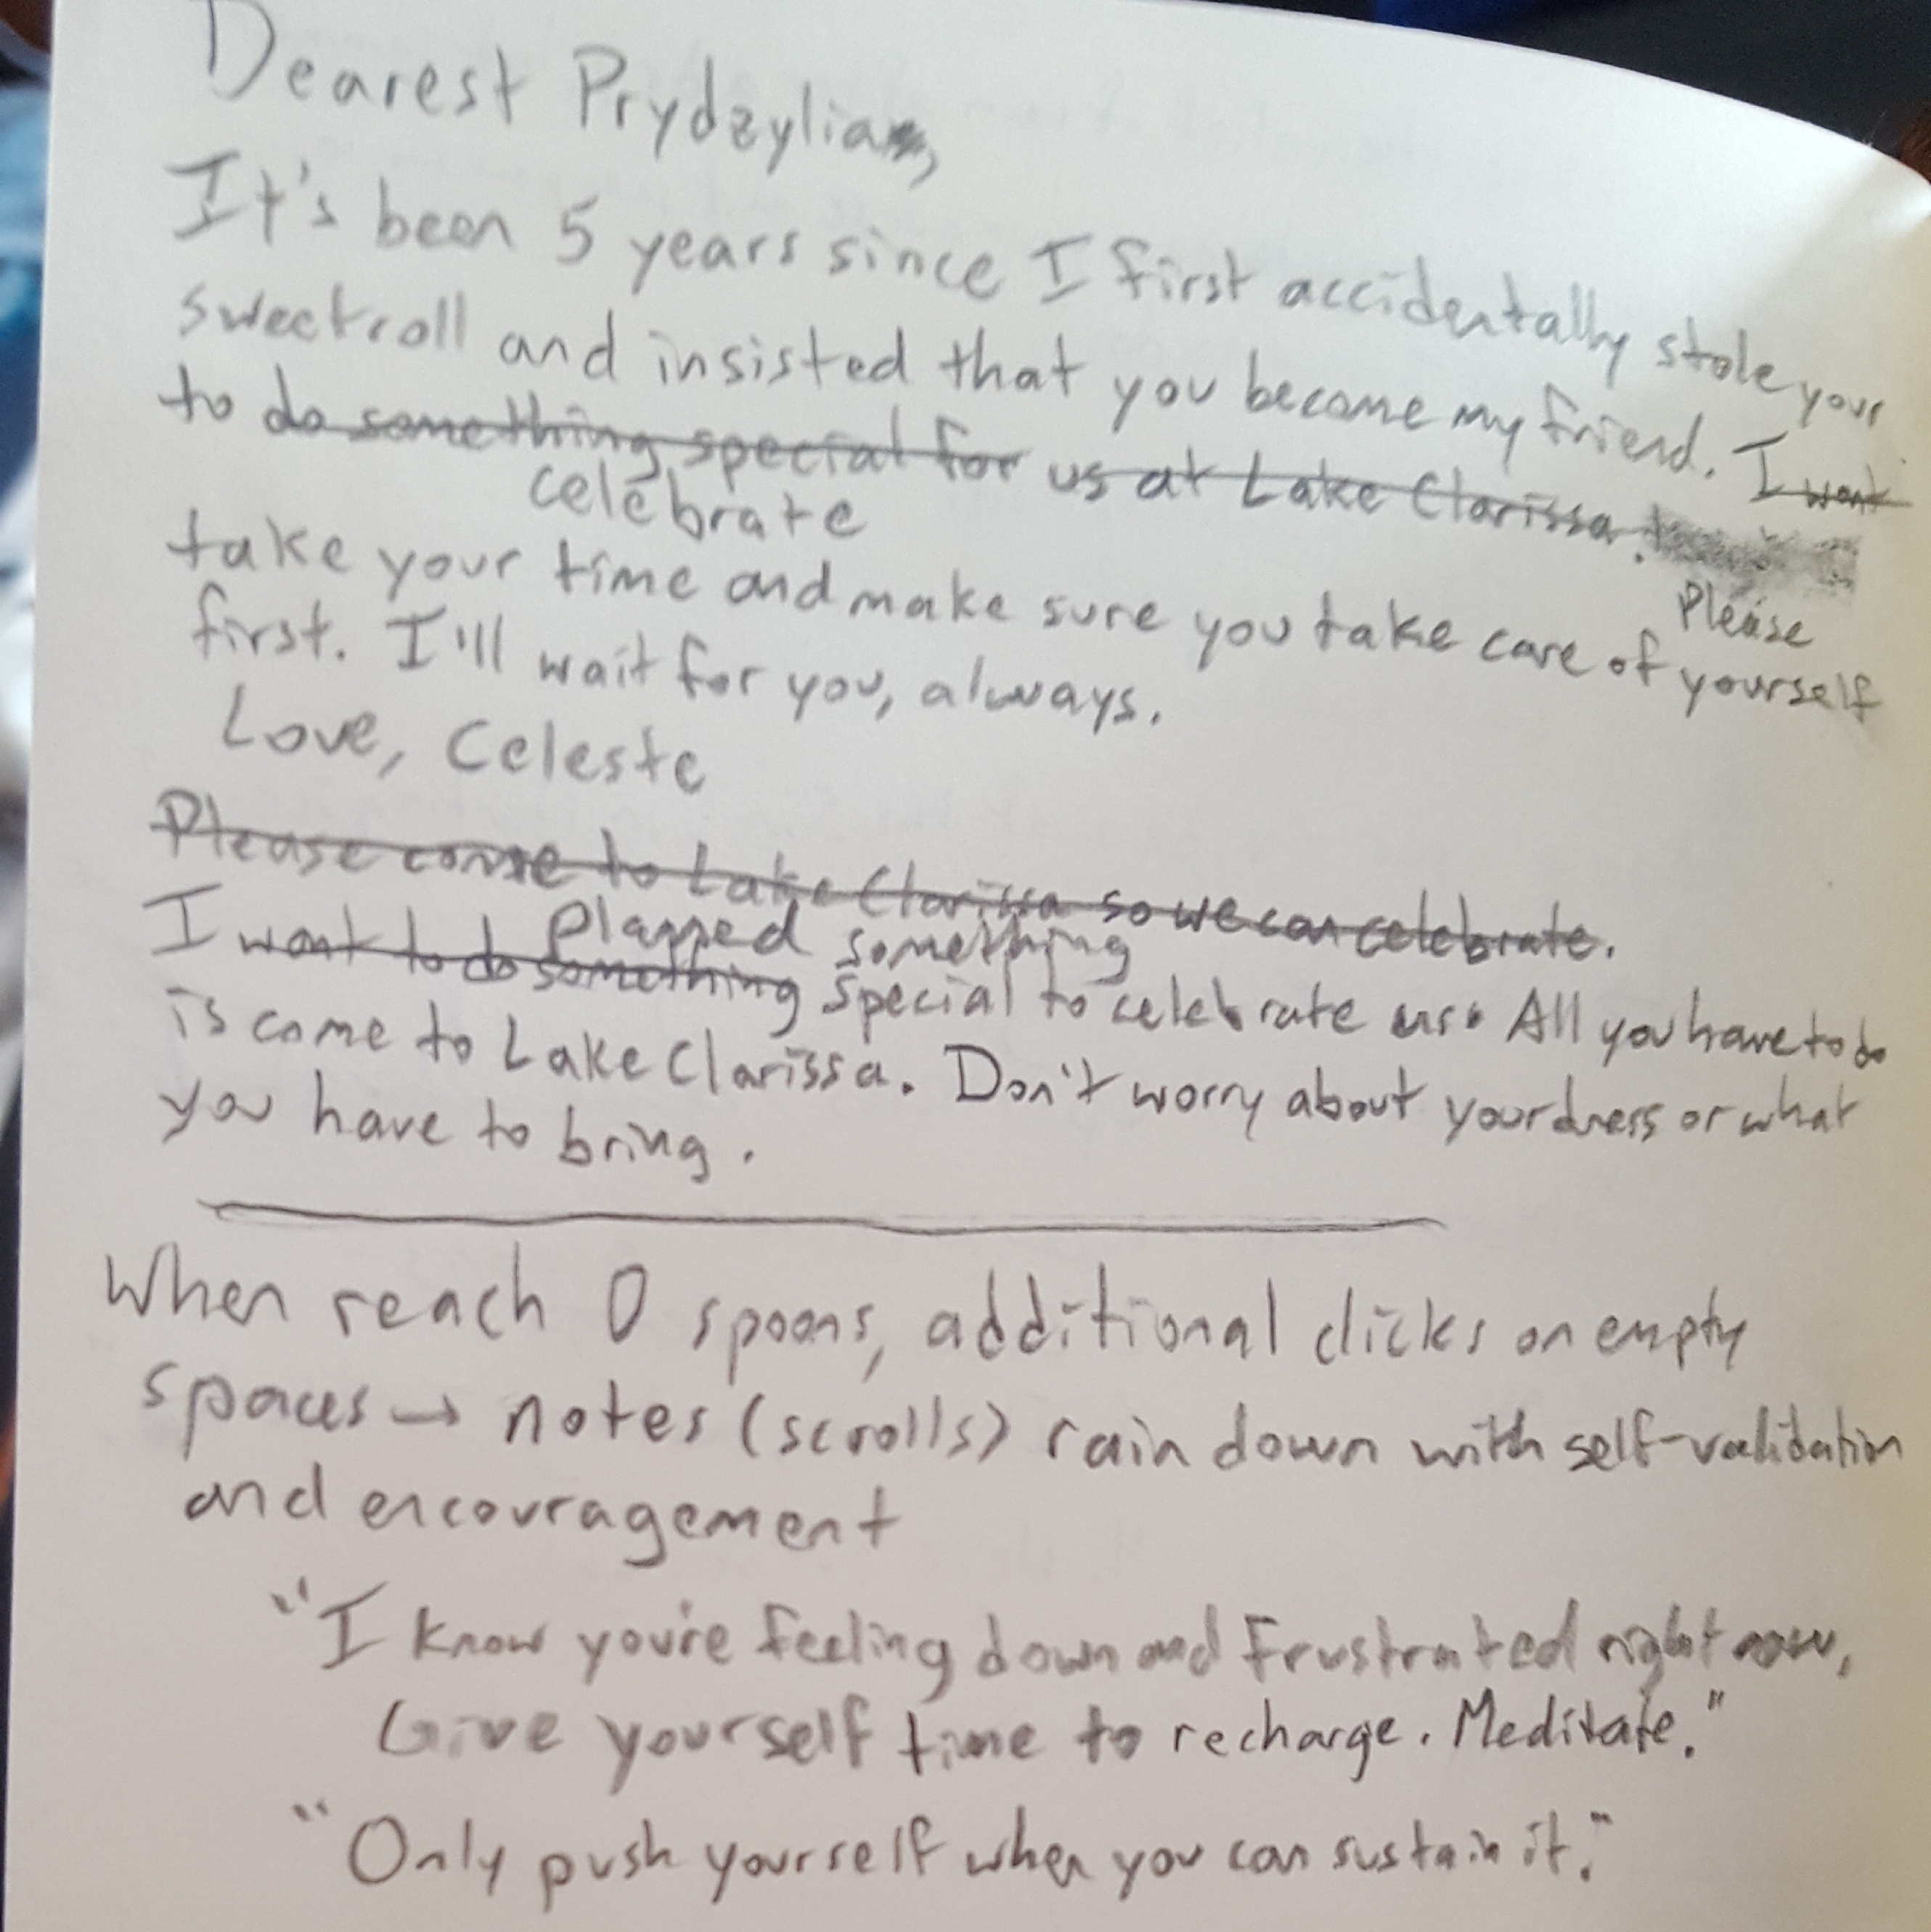 Dearest Prydzylia,
It's been 5 years since I first accidentally stole your
sweetroll and insisted that you become my friend. I want
to do something special for us at Lake Clarissa.
celebrate
Please
take your time and make sure you take care of yourself
first. I'll wait for you, always.
Love, Celeste
Please come to Lake Clarissa so we can celebrate.
planned something
I want to do something special to celebrate us. All you have to do
is come to Lake Clarissa. Don't worry about your dress or what
you have to bring.
When reach 0 spoons, additional clicks on empty
spaces → notes (scrolls) rain down with self-validation
and encouragement
"I know you're feeling down and frustrated right now,
Give yourself time to recharge. Meditate."
"Only push yourself when you can sustain it."